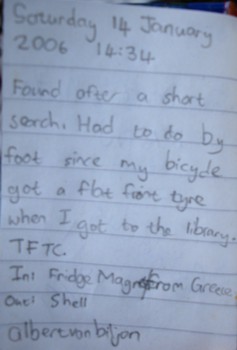 Saturday 14 January
2006 14:34
Found after a short
search. Had to do by
foot since my bicycle
got a flat front tyre
when I got to the library.
TFTC.
In: Fridge Magnet from Greece
Out: Shell
albertvanbiljon